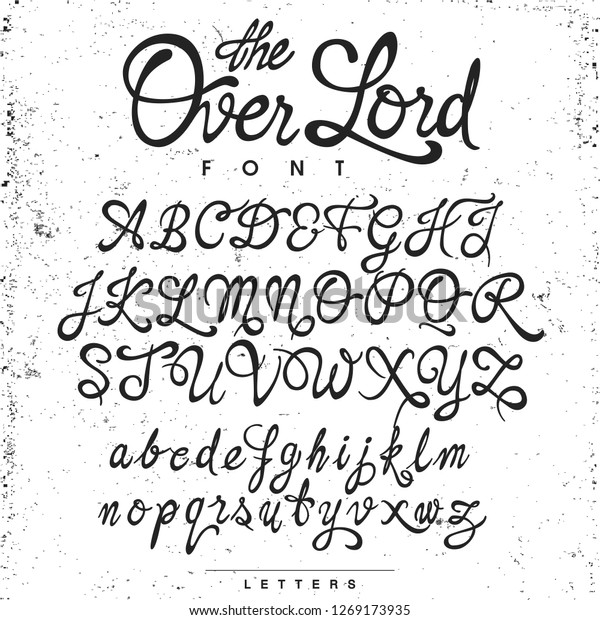 the
Over Lord
FONT
ABCDEFGHI
JKLMNOPQR
STUVWXYZ
abcdefghijklm
nopqrsutyvxwz
LETTERS
shutterstock.com · 1269173935